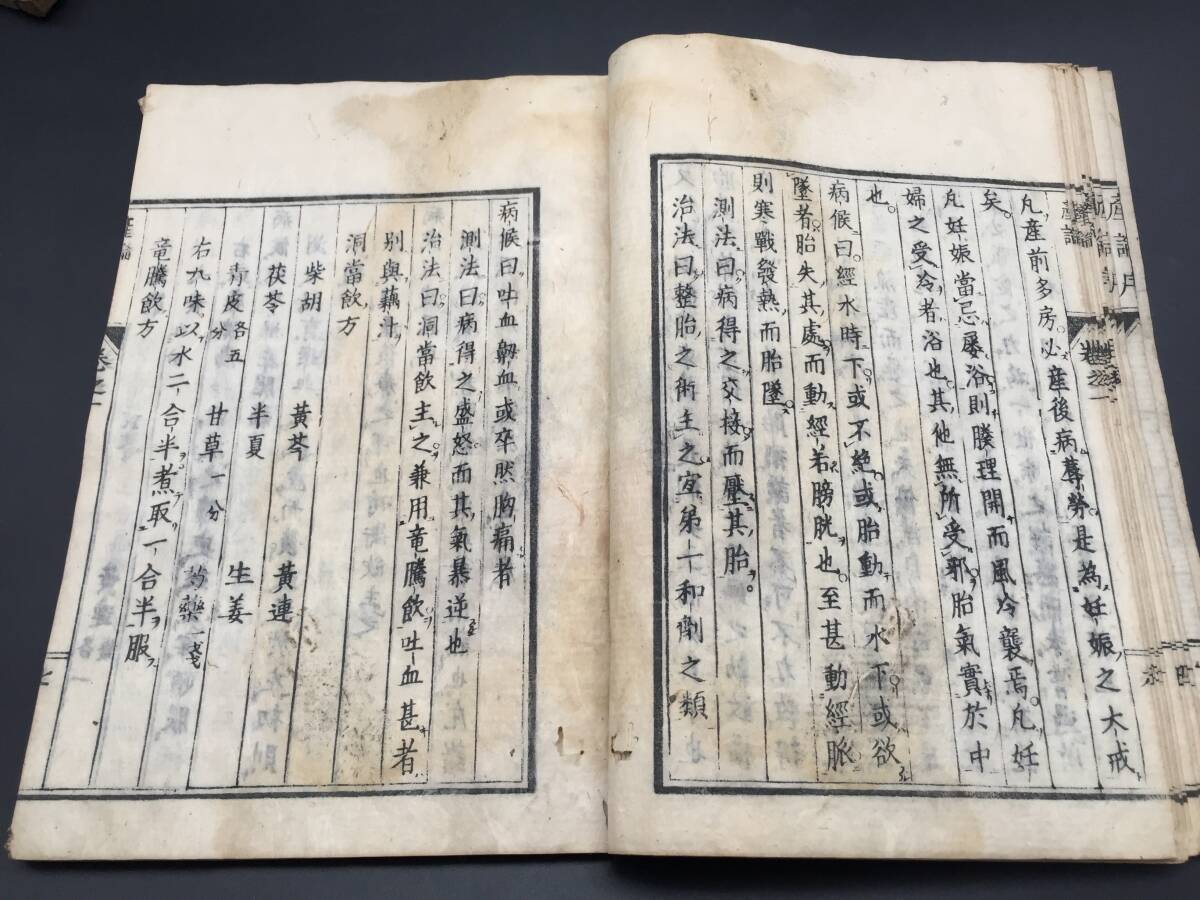 凡産前多房必産後病蓐勞是為妊娠之大戒
矣凡妊娠當忌屡浴則腠理開而風冷襲焉凡妊
婦之受冷者浴也其他無所受邪胎氣實於中
也
病候曰經水時下或不絶或胎動而水下或欲
墜者胎失其處而動經若膀胱也至甚動經脈
則寒戰發熱而胎墜
測法曰病得之交接而壓其胎
治法曰整胎之術主之宜第十和劑之類
産論
卷之一
病候曰吐血衂血或卒然胸痛者
測法曰病得之盛怒而其氣暴逆也
治法曰洞當飲主之兼用竜騰飲吐血甚者
別與藕汁
洞當飲方
柴胡 黄芩 黄連
茯苓 半夏 生姜
青皮各五分 甘草一分 芍藥一戔
右九味以水二合半煮取一合半服
竜騰飲方